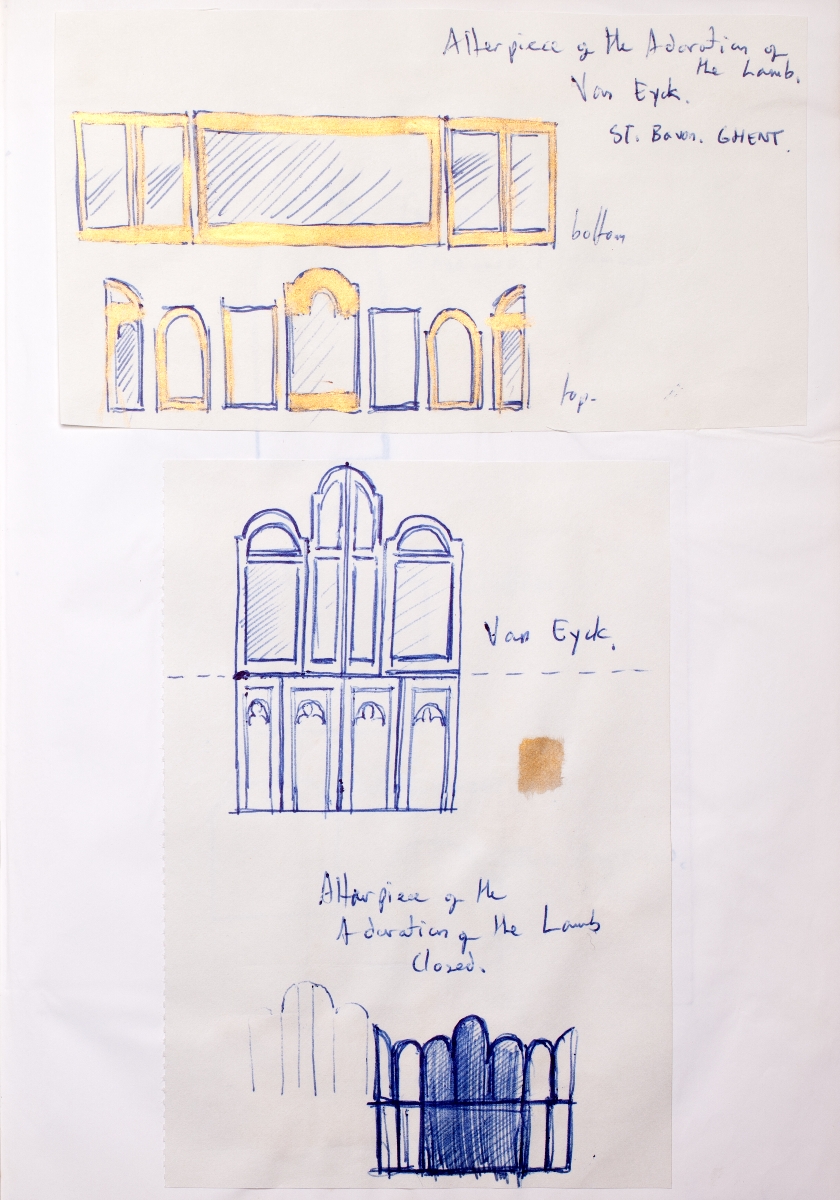 Alterpiece of the Adoration of
the Lamb.
Van Eyck.
ST. Bavon. GHENT.
bottom
top-
Van Eyck.
Altarpiece of the
Adoration of the Lamb
Closed.